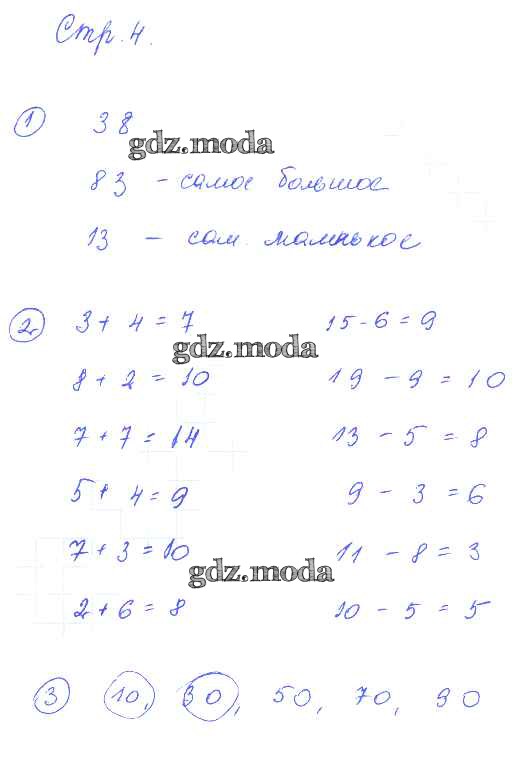 Стр. 4.
1 38
gdz.moda
83 - самое большое
13 - сам. маленькое
2 3 + 4 = 7 15 - 6 = 9
gdz.moda
8 + 2 = 10 19 - 9 = 10
7 + 7 = 14 13 - 5 = 8
5 + 4 = 9 9 - 3 = 6
7 + 3 = 10 11 - 8 = 3
gdz.moda
2 + 6 = 8 10 - 5 = 5
3 10, 30, 50, 70, 90